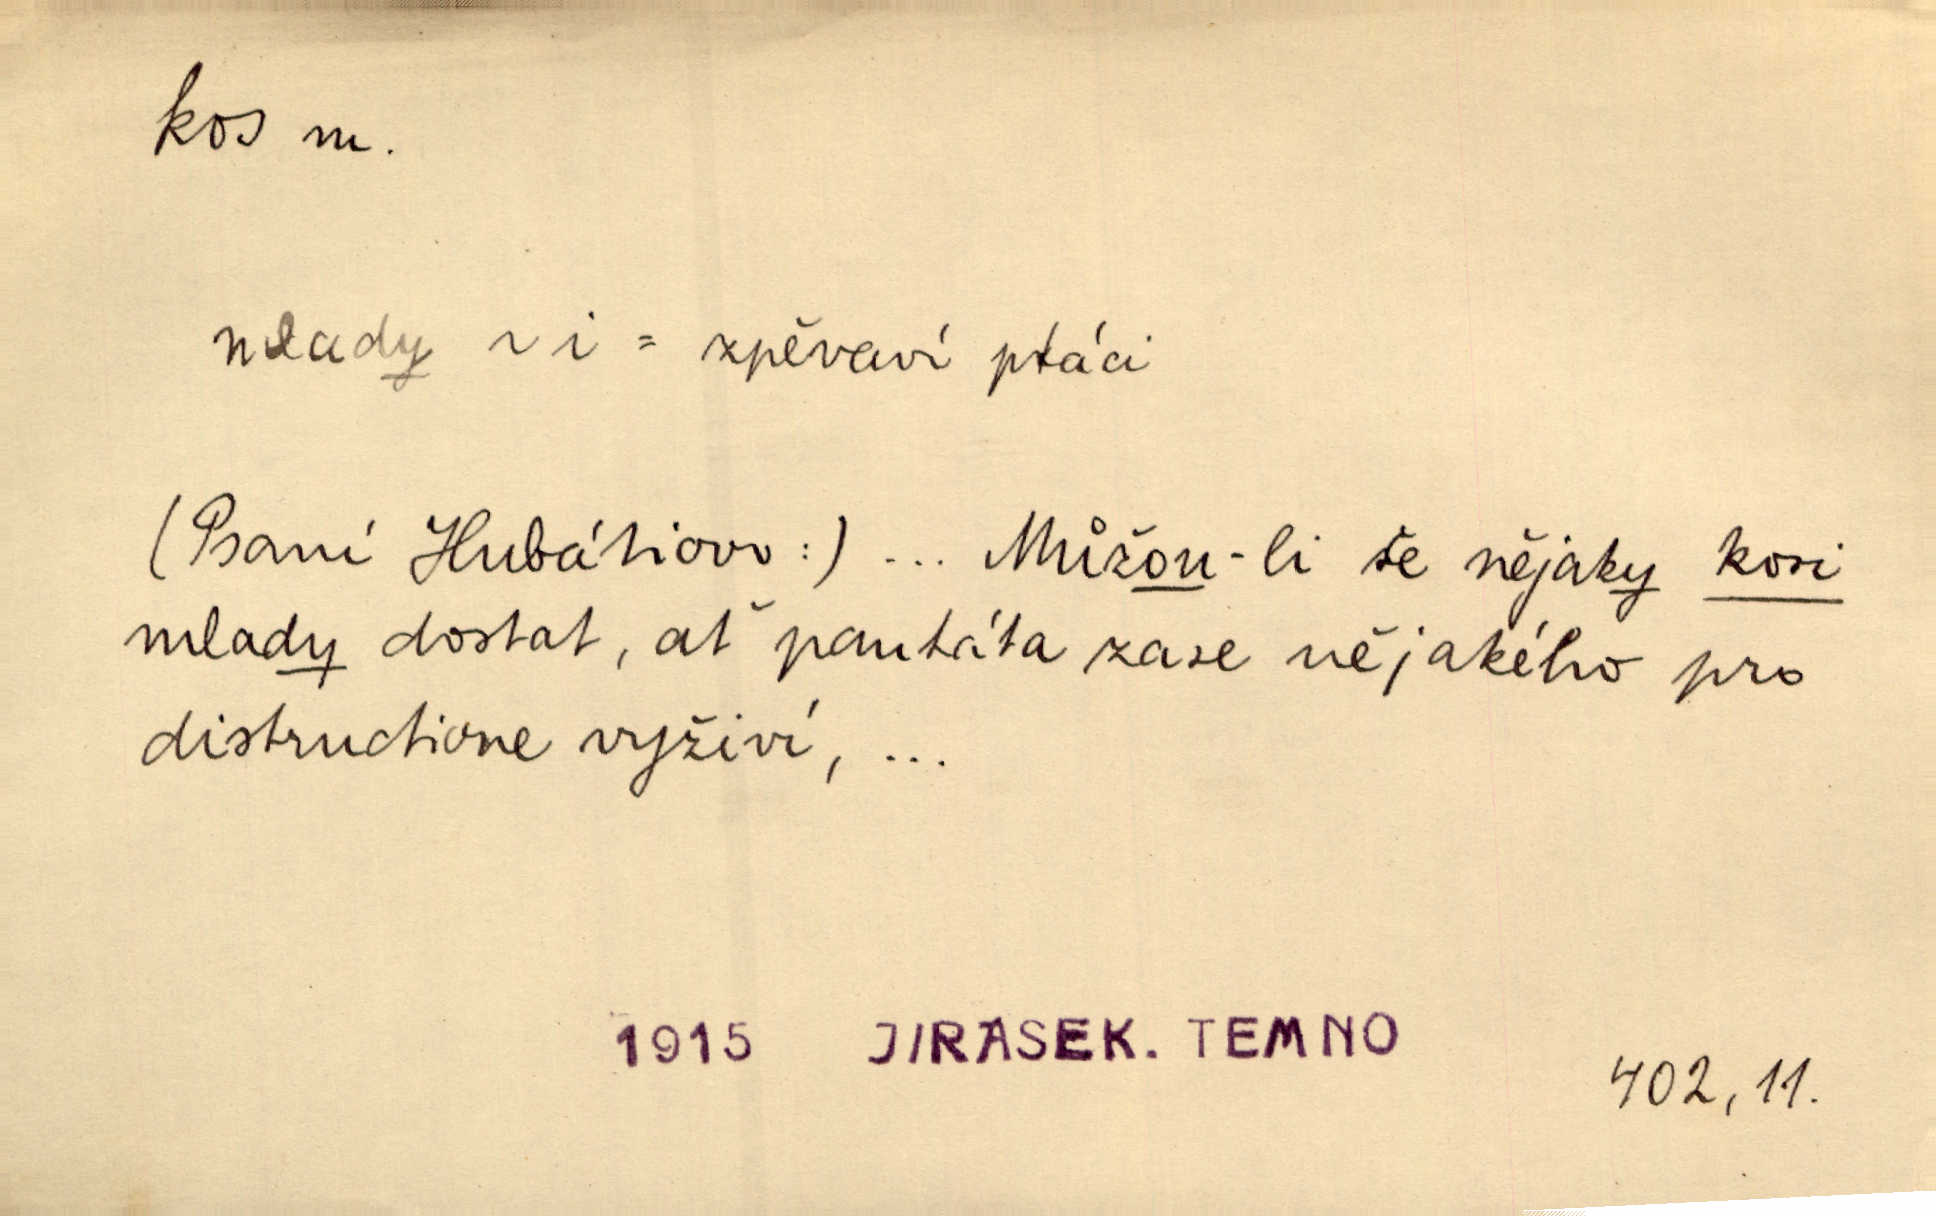 kos m.
mlady ~ i = zpěvaví ptáci
(Psaní Hubátiovo:) ... Můžou-li se nějaky kosi
mlady dostat, ať pantáta zase nějakého pro
distructione vyživí, ...
1915 JIRASEK. TEMNO
402, 11.